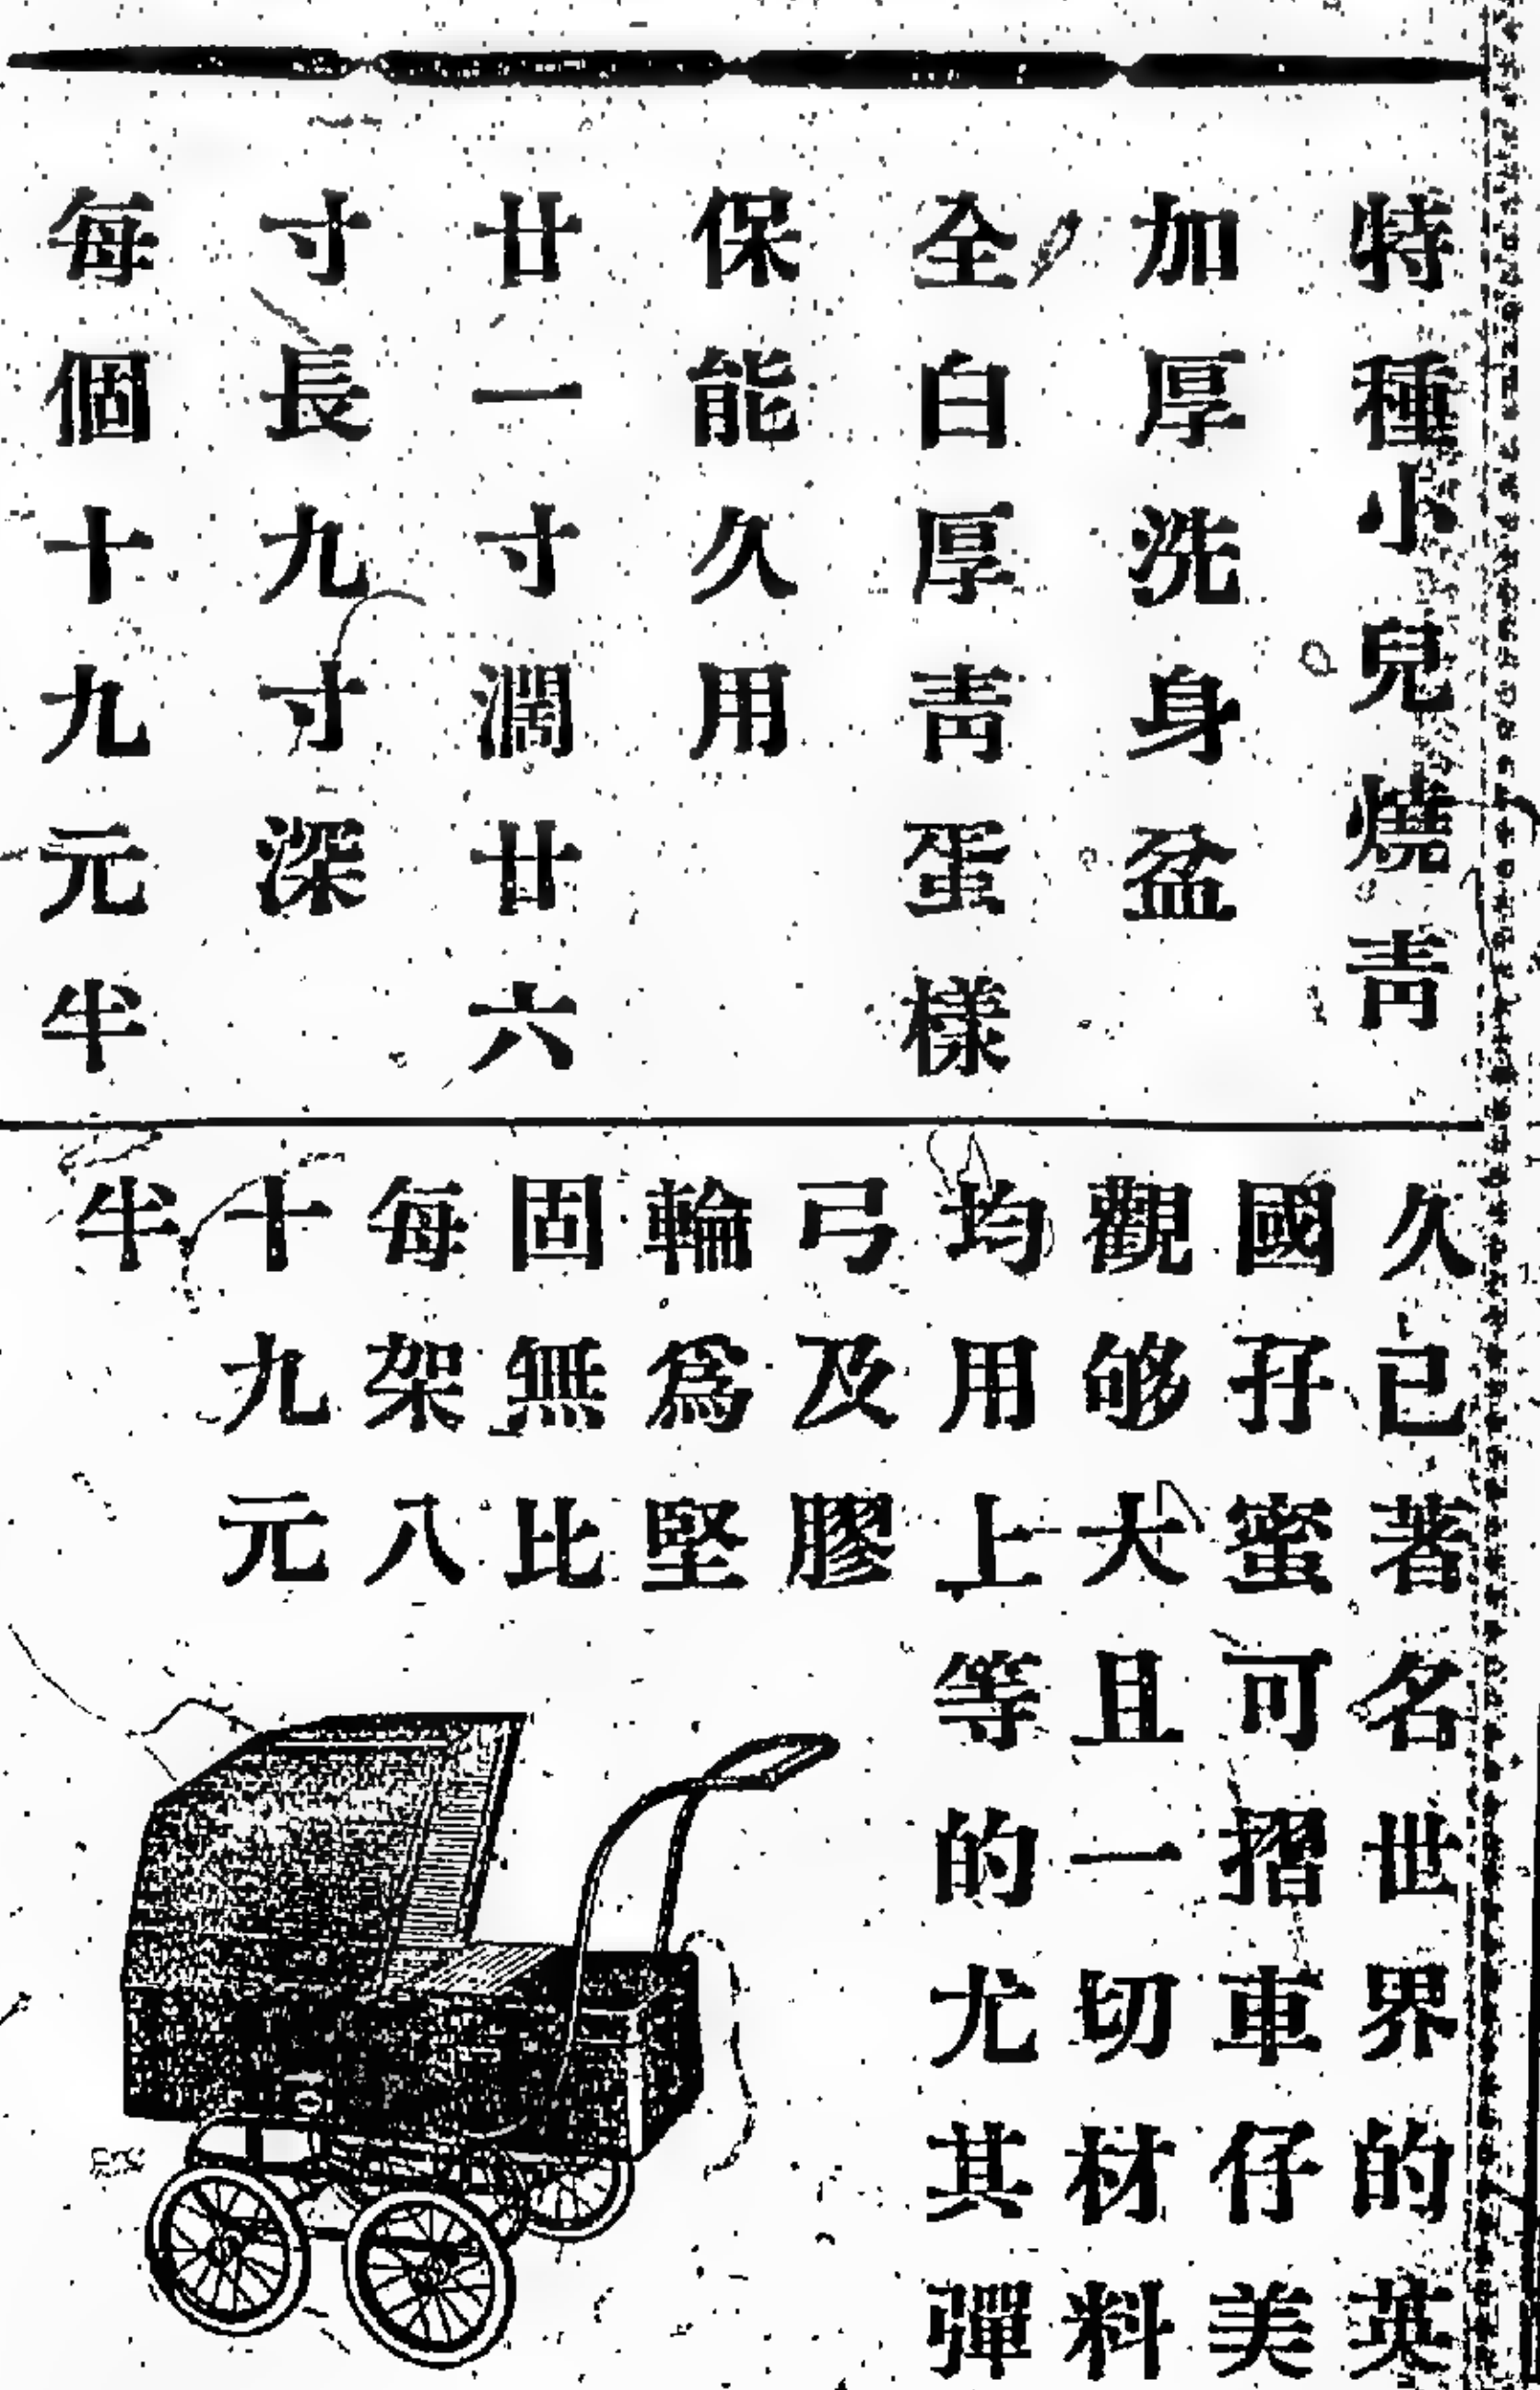 特種小兒燒靑
加厚洗身盆
全白厚靑蛋樣
保能久用
廿一寸濶廿六
寸長九寸深
每個十九元半
久已著名世界的英
國孖蜜可摺車仔美
觀够大且一切材料
均用上等的尤其彈
弓及膠
輪爲堅
固無比
每架八
十九元
半